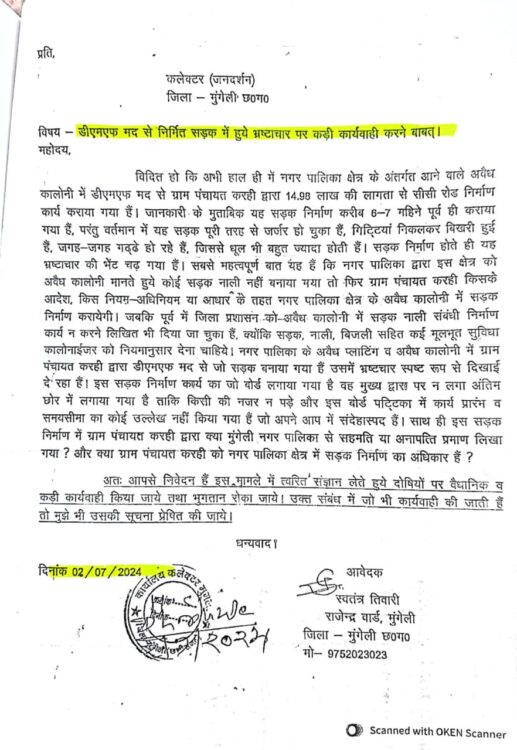 प्रति,
कलेक्टर (जनदर्शन)
जिला – मुंगेली छ०ग०
विषय – डीएमएफ मद से निर्मित सड़क में हुये भ्रष्टाचार पर कड़ी कार्यवाही करने बाबत्।
महोदय,
विदित हो कि अभी हाल ही में नगर पालिका क्षेत्र के अंतर्गत आने वाले अवैध
कालोनी में डीएमएफ मद से ग्राम पंचायत करही द्वारा 14.98 लाख की लागता से सीसी रोड निर्माण
कार्य कराया गया हैं। जानकारी के मुताबिक यह सड़क निर्माण करीब 6–7 महिने पूर्व ही कराया
गया हैं, परंतु वर्तमान में यह सड़क पूरी तरह से जर्जर हो चुका हैं, गिट्टियां निकलकर बिखरी हुई
हैं, जगह–जगह गढ्ढे हो रहे हैं, जिससे धूल भी बहुत ज्यादा होती हैं। सड़क निर्माण होते ही यह
भ्रष्टाचार की भेंट चढ़ गया हैं। सबसे महत्वपूर्ण बात यह हैं कि नगर पालिका द्वारा इस क्षेत्र को
अवैध कालोनी मानते हुये कोई सड़क नाली नहीं बनाया गया तो फिर ग्राम पंचायत करही किसके
आदेश, किस नियम–अधिनियम या आधार के तहत नगर पालिका क्षेत्र के अवैध कालोनी में सड़क
निर्माण करायेगी। जबकि पूर्व में जिला प्रशासन को–अवैध कालोनी में सड़क नाली संबंधी निर्माण
कार्य न करने लिखित भी दिया जा चुका हैं, क्योंकि सड़क, नाली, बिजली सहित कई मूलभूत सुविधा
कालोनाईजर को नियमानुसार देना चाहिये। नगर पालिका के अवैध प्लाटिंग व अवैध कालोनी में ग्राम
पंचायत करही द्वारा डीएमएफ मद से जो सड़क बनाया गया हैं उसमें भ्रष्टाचार स्पष्ट रूप से दिखाई
दे रहा हैं। इस सड़क निर्माण कार्य का जो बोर्ड लगाया गया है वह मुख्य द्वार पर न लगा अंतिम
छोर में लगाया गया है ताकि किसी की नजर न पड़े और इस बोर्ड पट्टिका में कार्य प्रारंभ व
समयसीमा का कोई उल्लेख नहीं किया गया हैं जो अपने आप में संदेहास्पद हैं। साथ ही इस सड़क
निर्माण में ग्राम पंचायत करही द्वारा क्या मुंगेली नगर पालिका से सहमति या अनापत्ति प्रमाण लिखा
गया ? और क्या ग्राम पंचायत करही को नगर पालिका क्षेत्र में सड़क निर्माण का अधिकार हैं ?
अतः आपसे निवेदन हैं इस मामले में त्वरित संज्ञान लेते हुये दोषियों पर वैधानिक व
कड़ी कार्यवाही किया जाये तथा भुगतान रोका जाये। उक्त संबंध में जो भी कार्यवाही की जाती हैं
तो मुझे भी उसकी सूचना प्रेषित की जाये।
धन्यवाद।
दिनांक 02/07/2024
आवेदक
स्वतंत्र तिवारी
राजेन्द्र वार्ड, मुंगेली
जिला – मुंगेली छ०ग०
मो– 9752023023
कार्यालय कलेक्टर
Scanned with OKEN Scanner